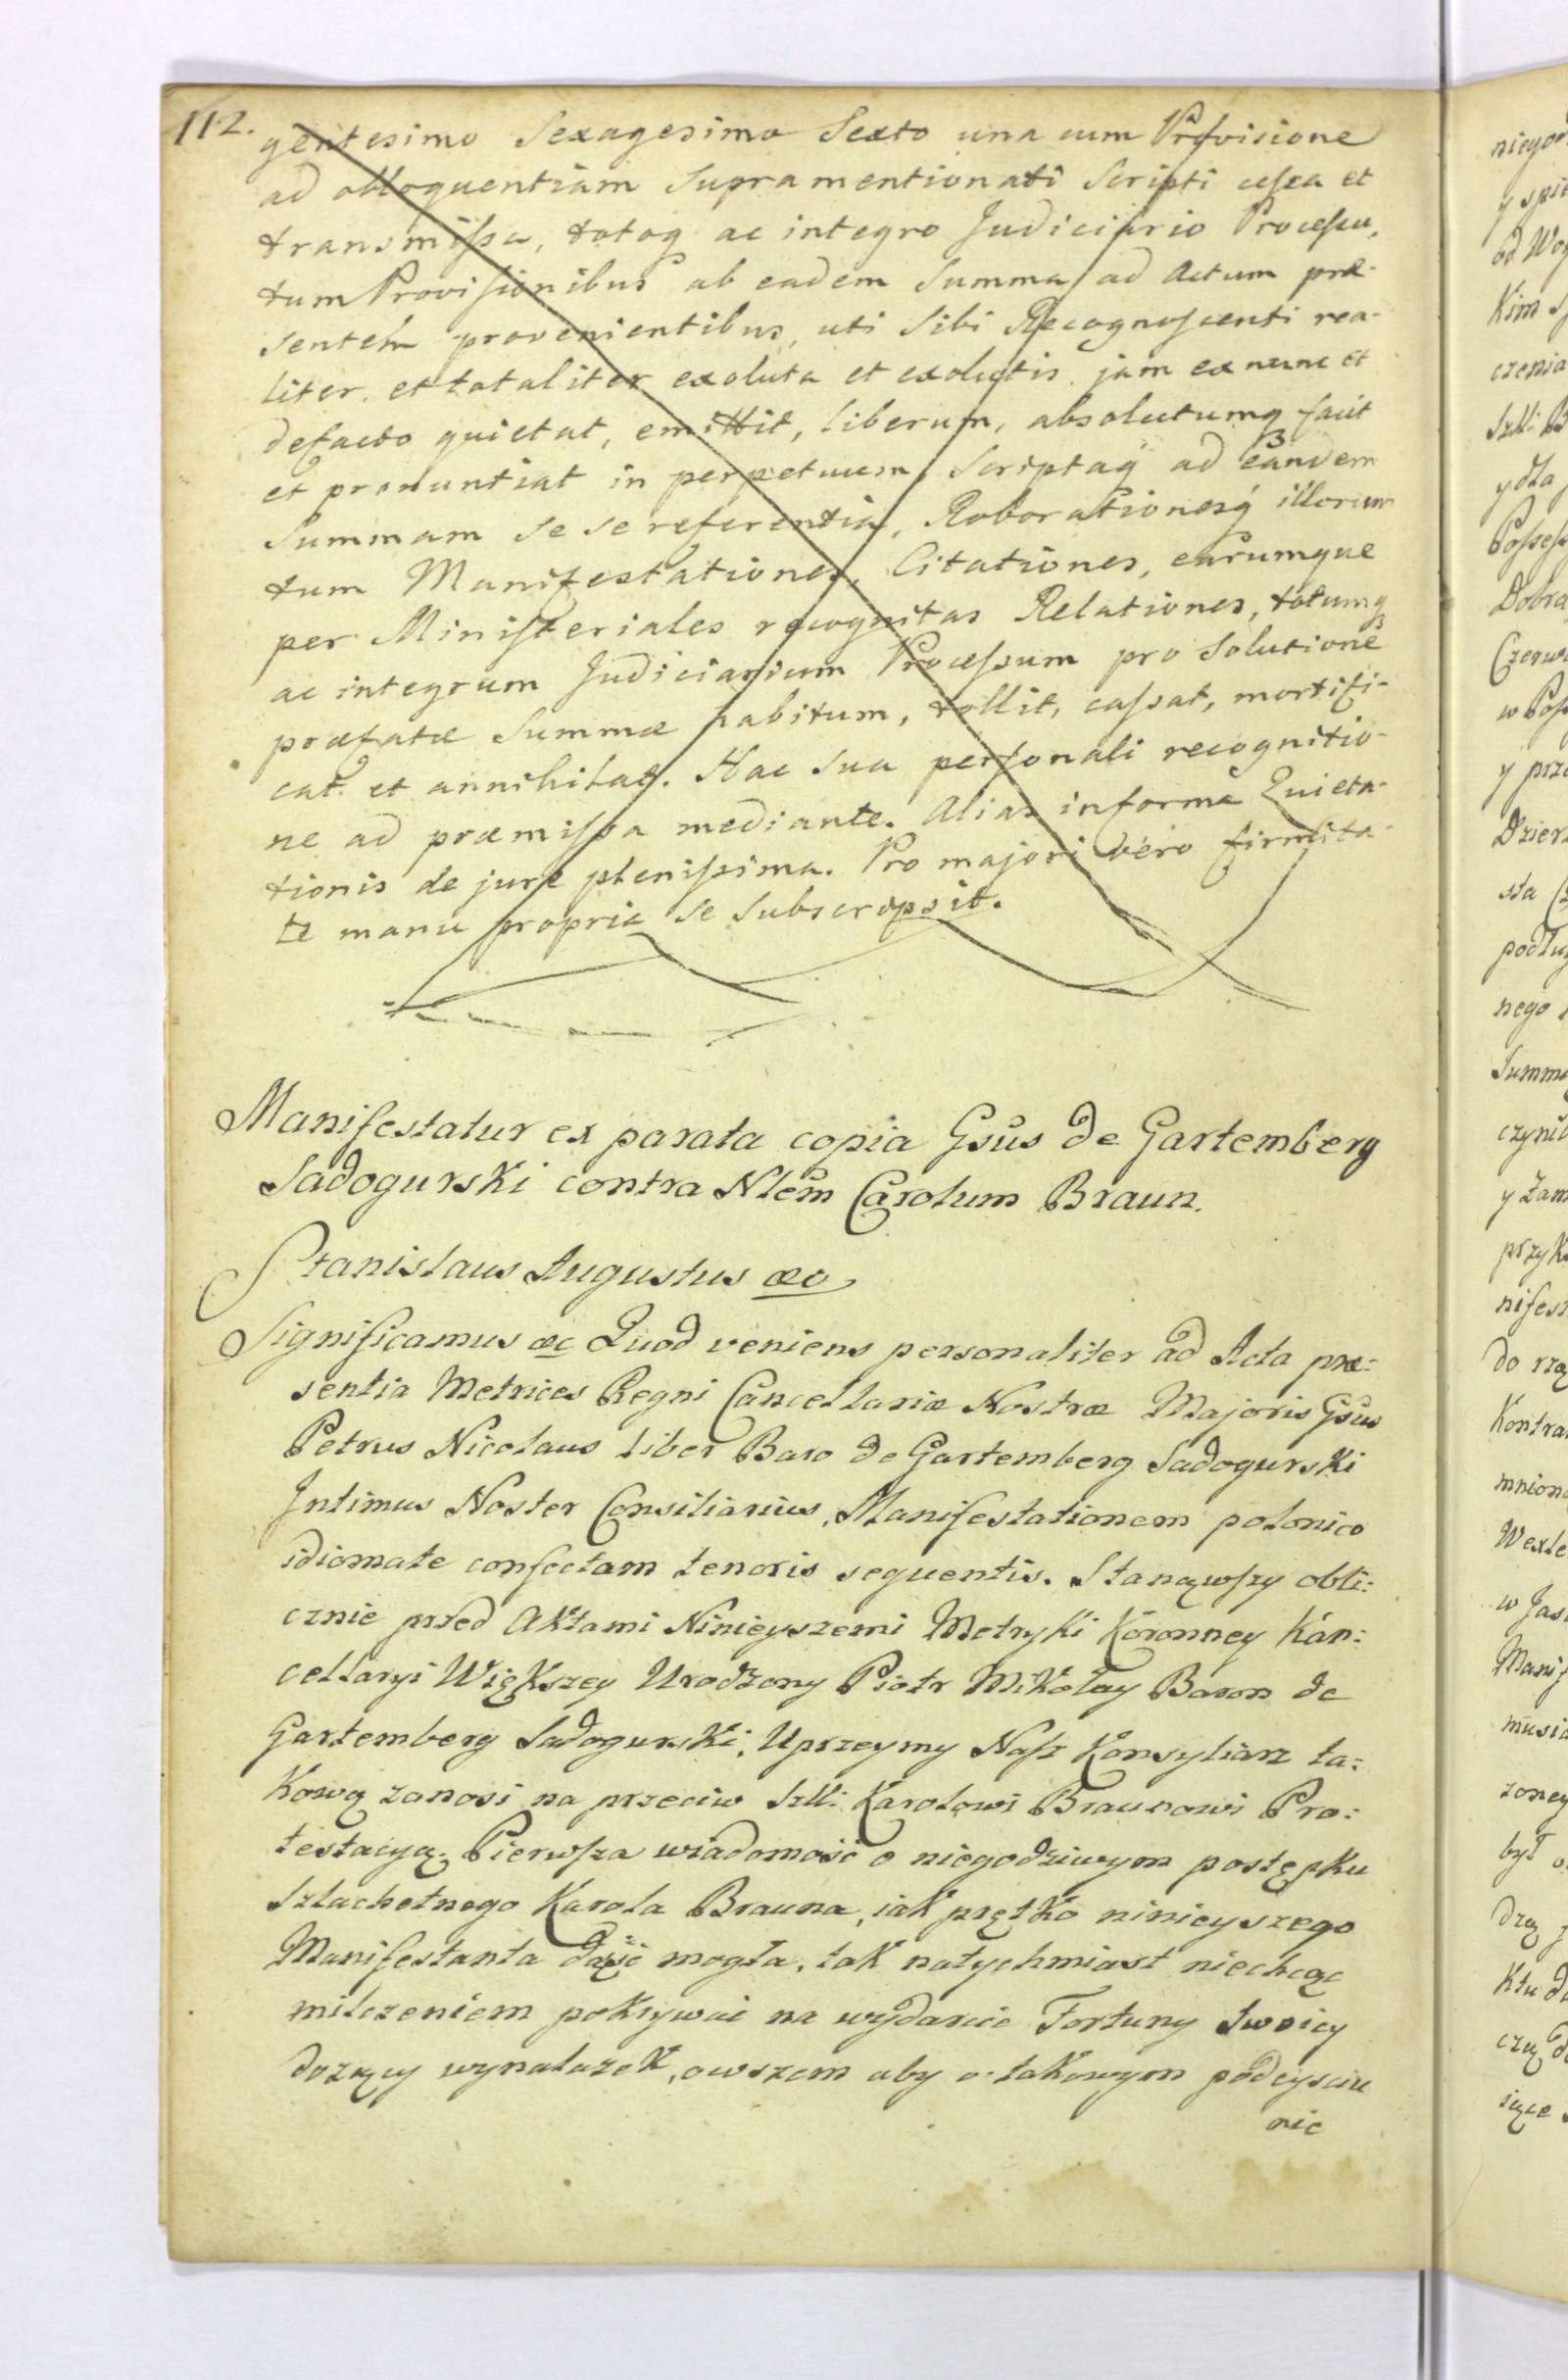 112.
gentesimo Sexagesimo Sexto una cum Provisione
ad alloquentiam Supramentionati Scripti cessa et
transmissa, totoq ac integro Judiciario Processu,
tum Provisionibus ab eadem Summa ad Actum præ-
sentem provenientibus, uti Sibi Recognoscenti rea-
liter et totaliter exoluta et exolutis jam ex nunc et
defacto quietat, emittit, liberum, absolutumq facit
et pronuntiat in perpetuum, Scriptaq ad Eandem
Summam se se referentia, Roborationesq illorum
tum Manifestationes, Citationes, earumque
per Ministeriales recognitas Relationes, totumq
ac integrum Judiciarium Processum pro Solutione
præfatæ Summæ habitum, tollit, cassat, mortifi-
cat et annihilat. Hac Sua personali recognitio-
ne ad præmissa mediante. Alias informa Quieta-
tionis de jure plenissima. Pro majori vero firmita-
te manu propria se Subscripsit.
Manifestatur ex parata copia Gsus de Gartemberg
Sadogurski contra Nlem Carolum Braun.
Stanislaus Augustus &c
Significamus &c Quod veniens personaliter ad Acta præ:
sentia Metrices Regni Cancellariæ Nostræ Majoris Gsus
Petrus Nicolaus liber Baro de Gartemberg Sadogurski
Intimus Noster Consiliarius, Manifestationem polonico
idiomate confectam tenoris sequentis. Stanąwszy obli:
cznie przed Aktami Ninieyszemi Metryki Koronney Kan:
cellaryi Większey Urodzony Piotr Mikołay Baron de
Gartemberg Sadogurski, Uprzeymy Nasz Konsyliarz ta:
kową zanosi na przeciw Szll: Karolowi Braunowi Pro:
testacyą. Pierwsza wiadomość o niegodziwym postępku
Szlachetnego Karola Brauna, iak prętko ninieyszego
Manifestanta dayść mogła, tak natychmiast niechcąc
milczeniem pokrywać na wydarcie Fortuny Swoiey
dozący wynalazek, owszem aby o takowym podeysciu
nic